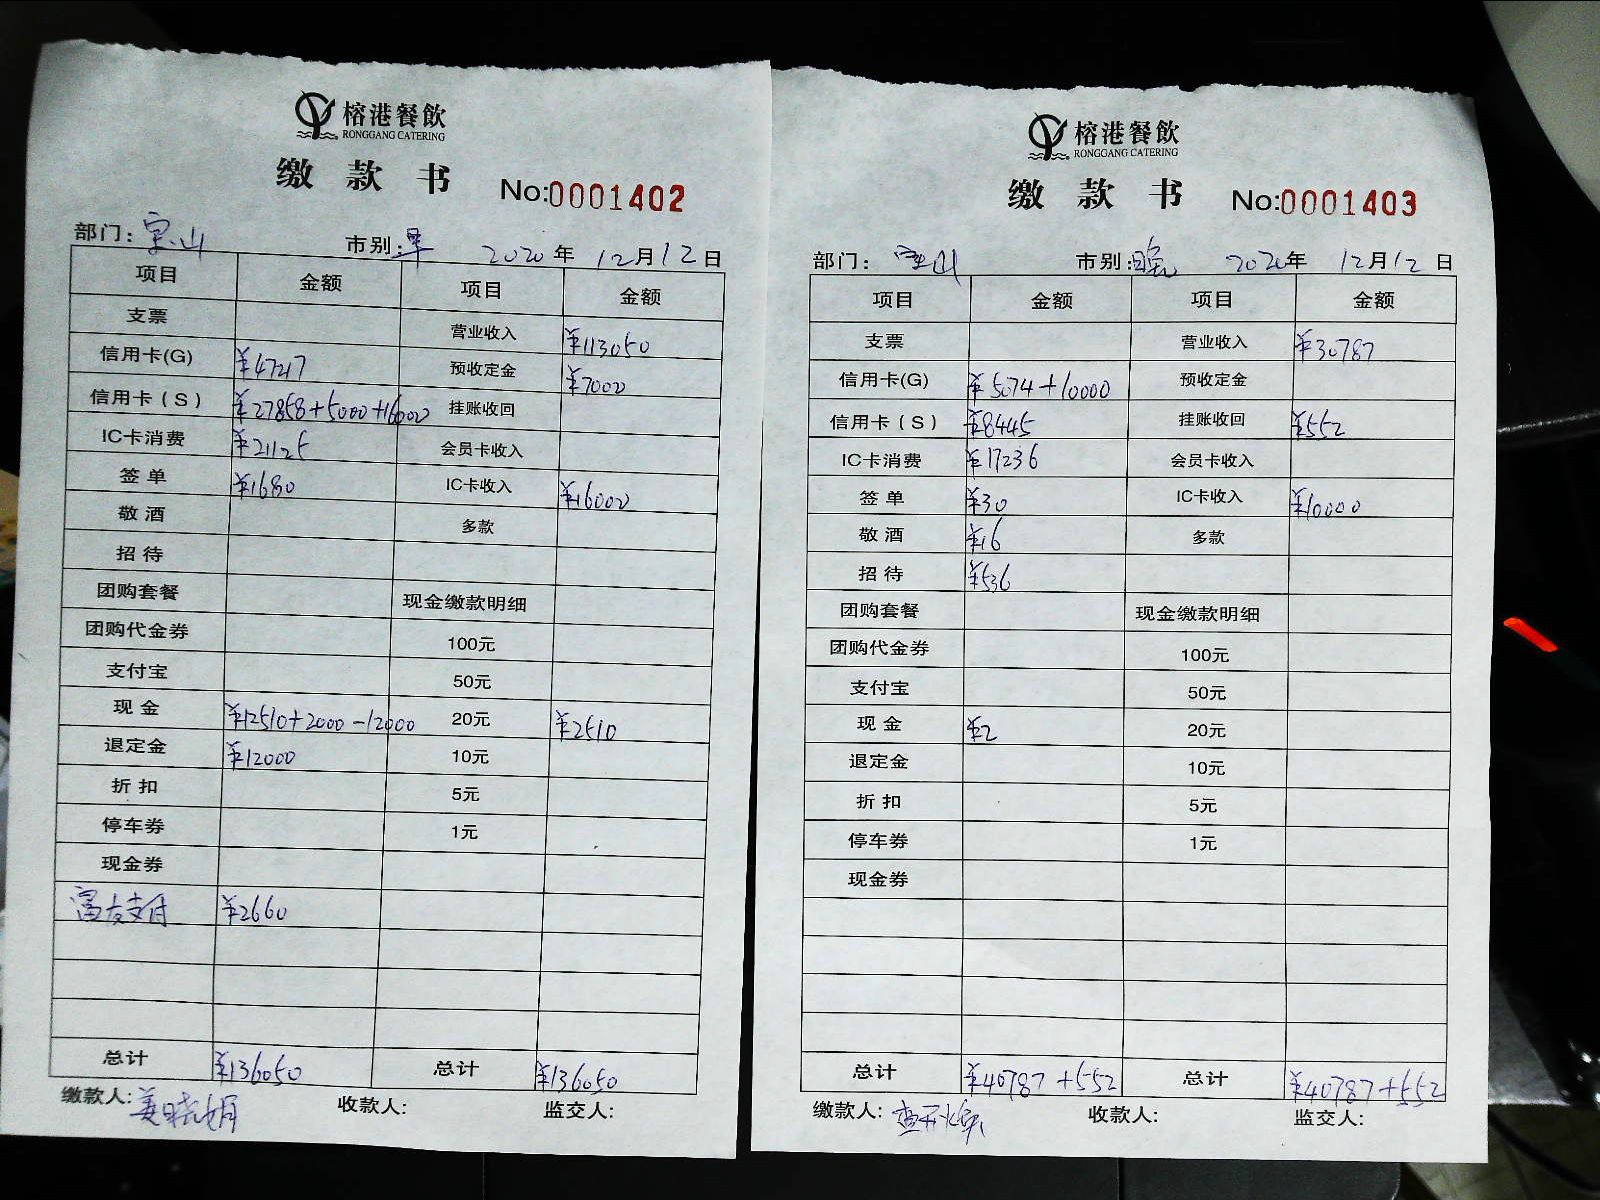 榕港餐飲
RONGGANG CATERING
缴款书 No:0001402
部门：宝山 市别：早 2020年12月12日
项目 金额 项目 金额
支票 营业收入 ¥113050
信用卡(G) ¥47217 预收定金 ¥7000
信用卡（S） ¥27858+5000+16000 挂账收回
IC卡消费 ¥21125 会员卡收入
签单 ¥1680 IC卡收入 ¥16000
敬酒 多款
招待
团购套餐 现金缴款明细
团购代金券 100元
支付宝 50元
现金 ¥12510+2000-12000 20元 ¥2510
退定金 ¥12000 10元
折扣 5元
停车券 1元
现金券
富友支付 ¥2660
总计 ¥136050 总计 ¥136050
缴款人：姜晓娟 收款人： 监交人：
榕港餐飲
RONGGANG CATERING
缴款书 No:0001403
部门：宝山 市别：晚 2020年12月12日
项目 金额 项目 金额
支票 营业收入 ¥30787
信用卡(G) ¥5074+10000 预收定金
信用卡（S） ¥8445 挂账收回 ¥552
IC卡消费 ¥17236 会员卡收入
签单 ¥30 IC卡收入 ¥10000
敬酒 ¥16 多款
招待 ¥536
团购套餐 现金缴款明细
团购代金券 100元
支付宝 50元
现金 ¥2 20元
退定金 10元
折扣 5元
停车券 1元
现金券
总计 ¥40787+552 总计 ¥40787+552
缴款人： 收款人： 监交人：